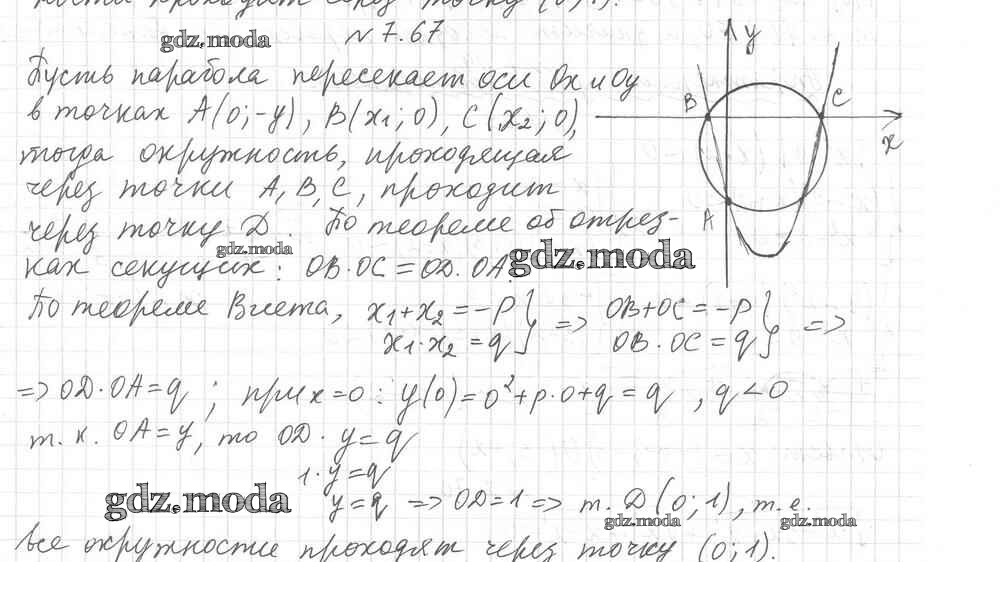 ности проходит через точку (0;1).
gdz.moda
№7.67
Пусть парабола пересекает оси Ox и Oy
в точках A(0;-y), B(x₁;0), C(x₂;0),
тогда окружность, проходящая
через точки A, B, C, проходит
через точку Д. По теореме об отрез-
gdz.moda
ках секущих: OB·OC=OД·OA.
gdz.moda
По теореме Виета, x₁+x₂=-p } => OB+OC=-p } =>
x₁·x₂=q OB·OC=q
=> OД·OA=q ; при x=0: y(0)=0²+p·0+q=q, q<0
т.к. OA=y, то OД·y=q
1·y=q
gdz.moda
y=q => OД=1 => т. Д(0;1), т.е.
gdz.moda
gdz.moda
все окружности проходят через точку (0;1).
y
B
C
x
A